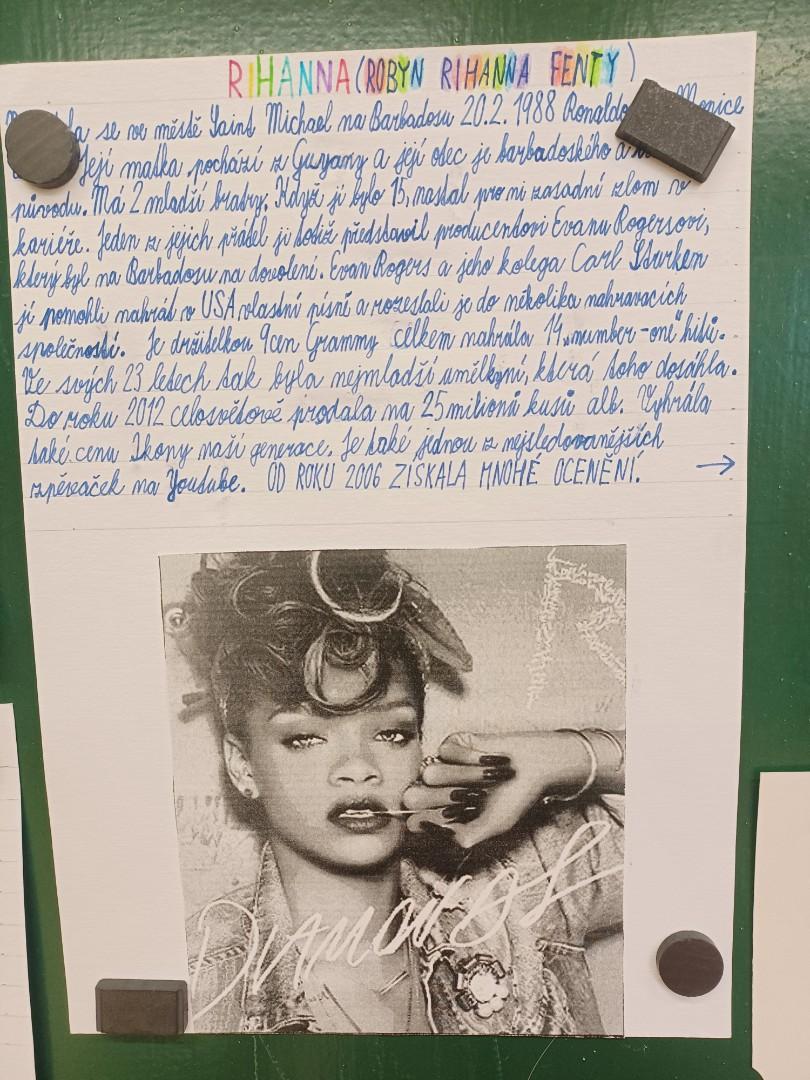 RIHANNA (ROBYN RIHANNA FENTY)
se ve městě Saint Michael na Barbadosu 20.2.1988 Monice
Její matka pochází z Guyany a její otec je barbadoského a
původu. Má 2 mladší bratry. Když jí bylo 15, nastal pro ni zasadní zlom v
kariéře. Jeden z jejich přátel ji totiž představil producentovi Evanu Rogersovi,
ktery byl na Barbadosu na dovolení. Evan Rogers a jeho kolega Carl Sturken
jí pomohli nahrát v USA vlastní písně a rozeslali je do několika nahravacích
společností. Je držitelkou 9cen Grammy celkem nahrála 14 „number-one" hitů.
Ve svých 23 letech tak byla nejmladší umělkyní, která toho dosáhla.
Do roku 2012 celosvětově prodala na 25 milionů kusů alb. Vyhrála
také cenu Ikony naší generace. Je také jednou z nejsledovanějších
zpěvaček na Youtube. OD ROKU 2006 ZÍSKALA MNOHÉ OCENĚNÍ. →
DIAMONDS